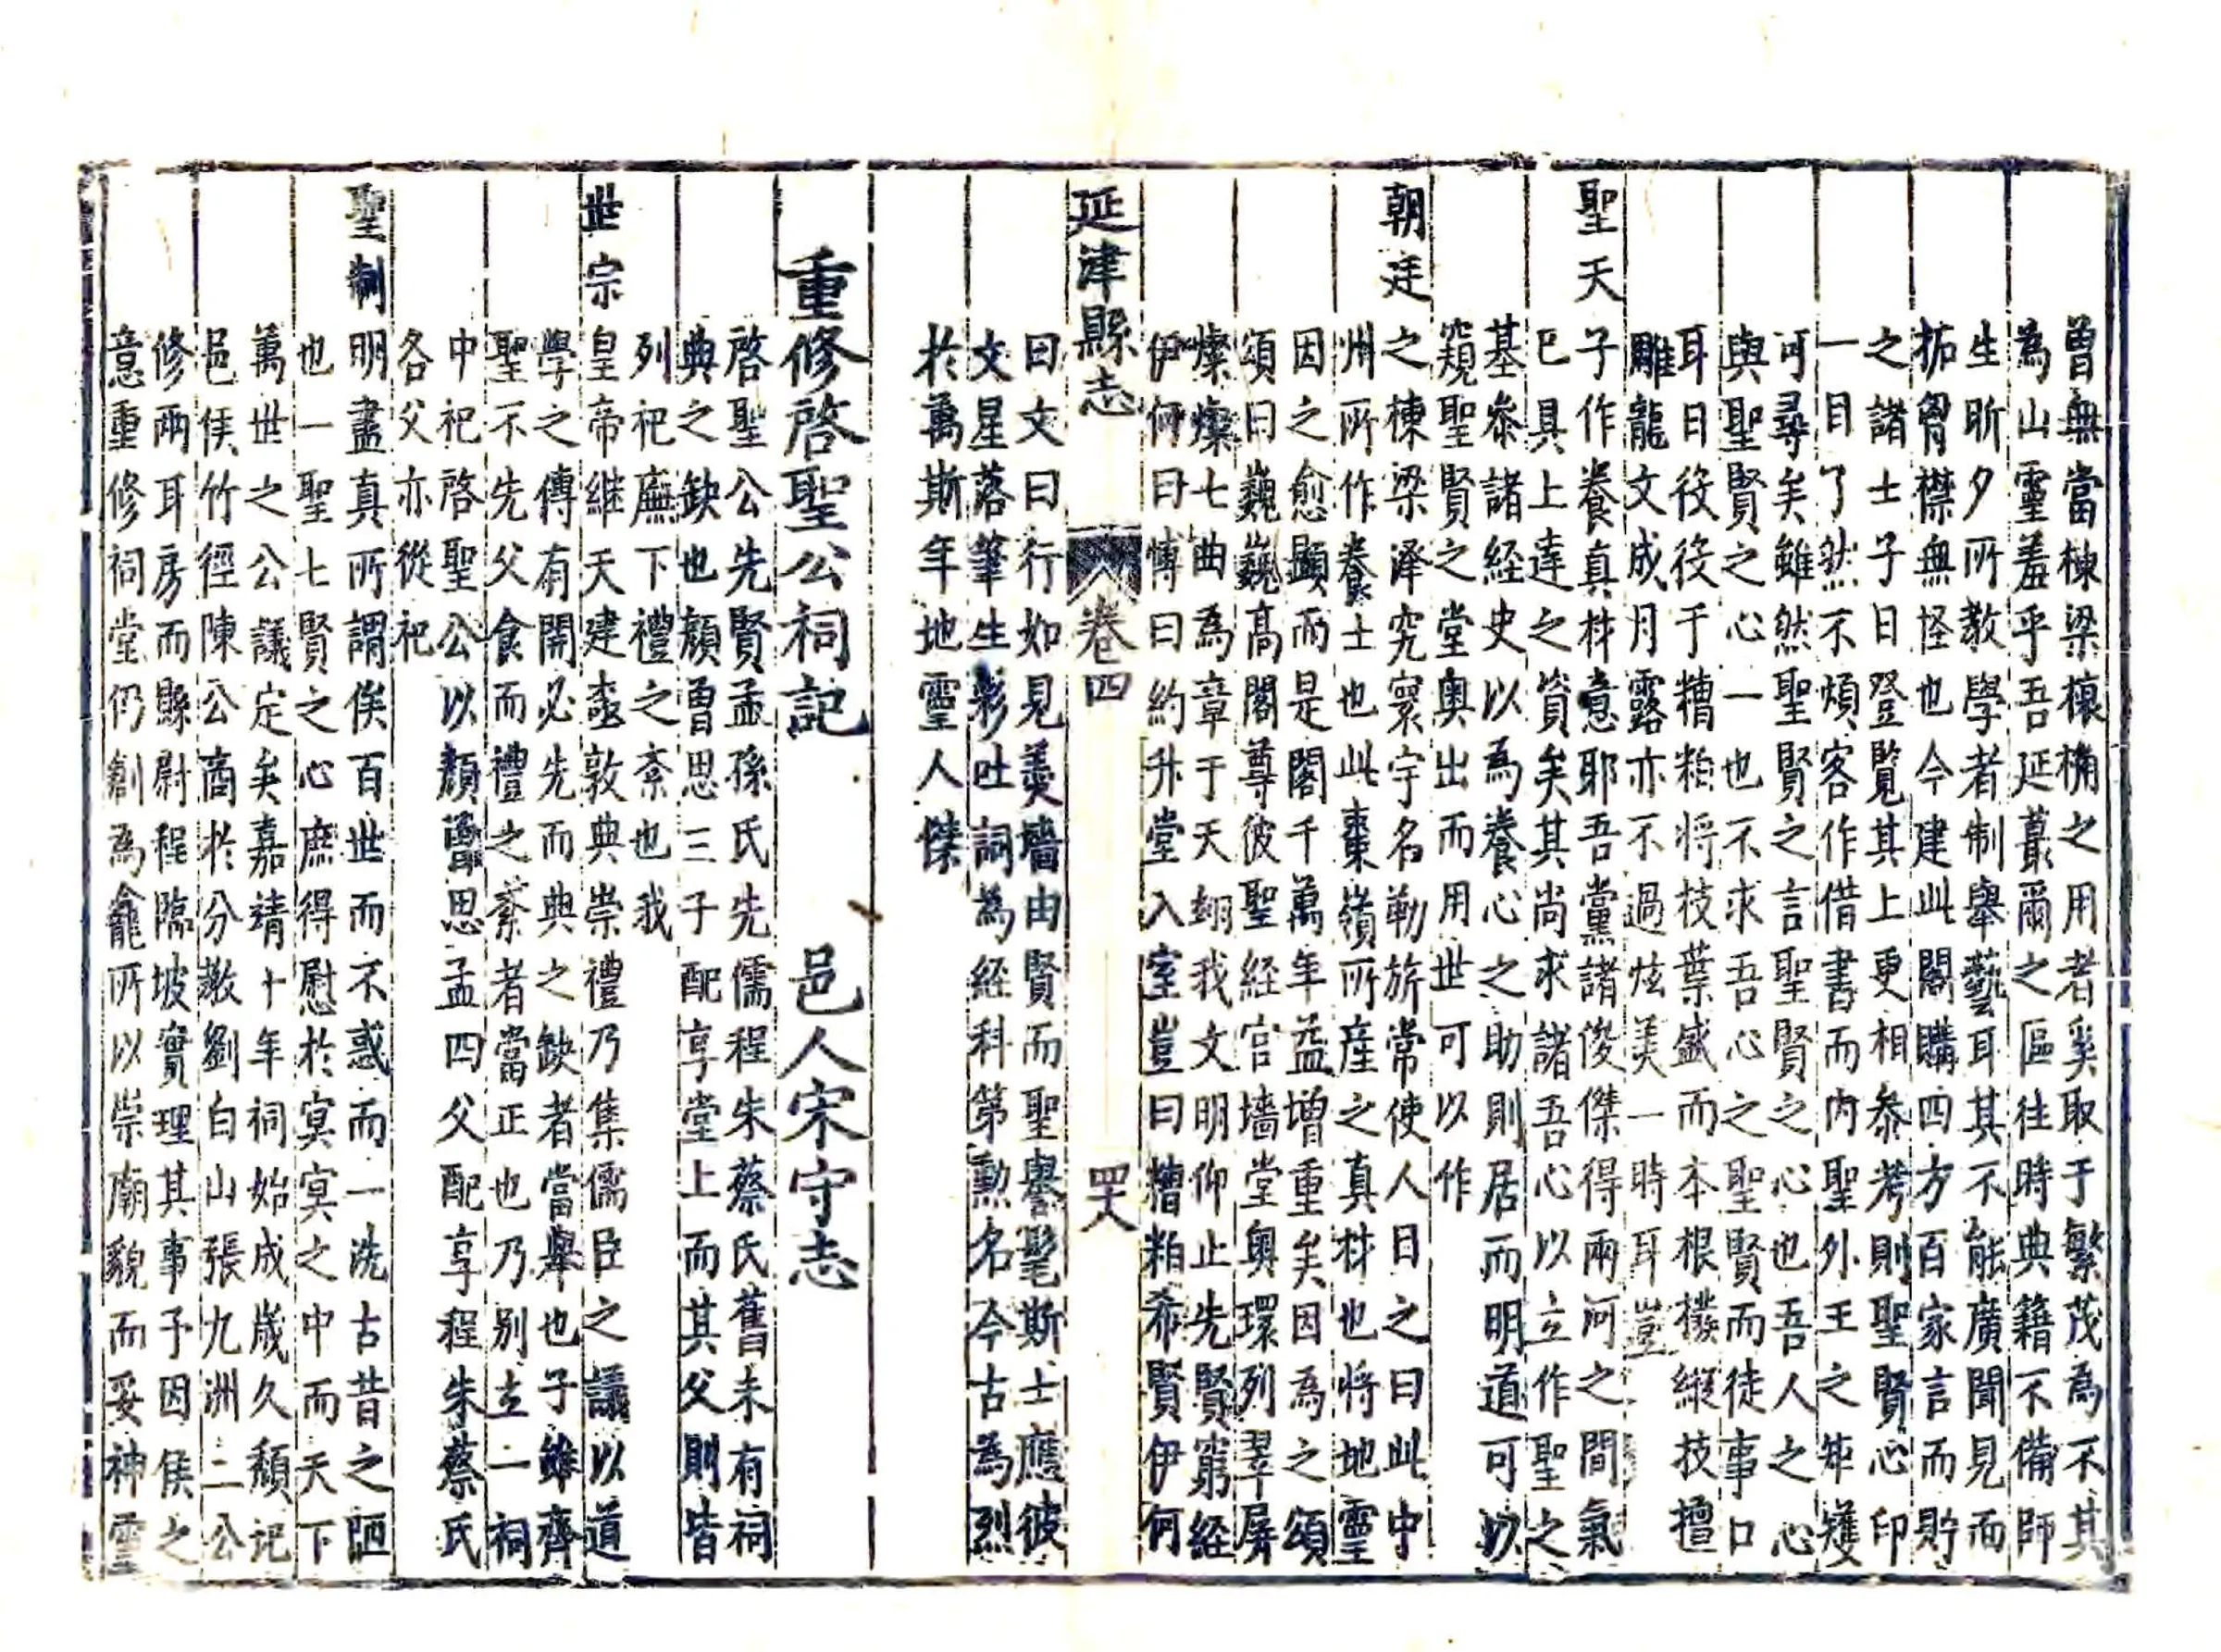 曾無當棟梁欀桷之用者奚取于繁茂為不其
為山靈羞乎吾延蕞爾之區往時典籍不備師
生昕夕所教學者制舉藝耳其不能廣聞見而
拓胷襟無怪也今建此閣購四方百家言而貯
之諸士子日登覧其上更相叅考則聖賢心印
一目了然不煩客作借書而内聖外王之
可尋矣雖然聖賢之言聖賢之心也吾人之心
與聖賢之心一也不求吾心之聖賢而徒事口
耳日役役于糟粕将枝葉盛而本根撥縱技擅
雕龍文成月露亦不過炫美一時耳豈
聖天
子作養真材意耶吾黨諸俊傑得兩河之間氣
已具上達之資矣其尚求諸吾心以立作聖之
基叅諸経史以為養心之助則居而明道可以
窺聖賢之堂奥出而用世可以作
朝廷
之棟梁澤究寰宇名勒旂常使人日之曰此中
州所作養士也此棗嶺所産之真材也将地靈
因之愈顯而是閣千萬年益增重矣因為之頌
頌曰巍巍髙閣尊彼聖経宫墻堂奥環列翠屏
燦燦七曲為章于天翊我文明仰止先賢窮経
伊何曰愽曰約升堂入室豈曰糟粕希賢伊何
延津縣志 卷四 四八
曰文曰行如見羮墻由賢而聖譽髦斯士應彼
文星落筆生彩吐詞為経科第勲名今古為烈
於萬斯年地靈人傑
重修啓聖公祠記 邑人宋守志
啓聖公先賢孟孫氏先儒程朱蔡氏舊未有祠
典之缺也顔曽思三子配享堂上而其父則皆
列祀廡下禮之紊也我
世宗
皇帝継天建極敦典崇禮乃集儒臣之議以道
學之傳有開必先而典之缺者當舉也子雖齊
聖不先父食而禮之紊者當正也乃别立一祠
中祀啓聖公以顔曽思孟四父配享程朱蔡氏
各父亦從祀
聖制
明盡真所謂俟百世而不惑而一洗古昔之陋
也一聖七賢之心庶得慰於冥冥之中而天下
萬世之公議定矣嘉靖十年祠始成歲久頽圮
邑侯竹徑陳公商於分教劉白山張九洲二公
修兩耳房而縣尉程臨坡實理其事予因侯之
意重修祠堂仍創為龕所以崇廟貌而妥神靈